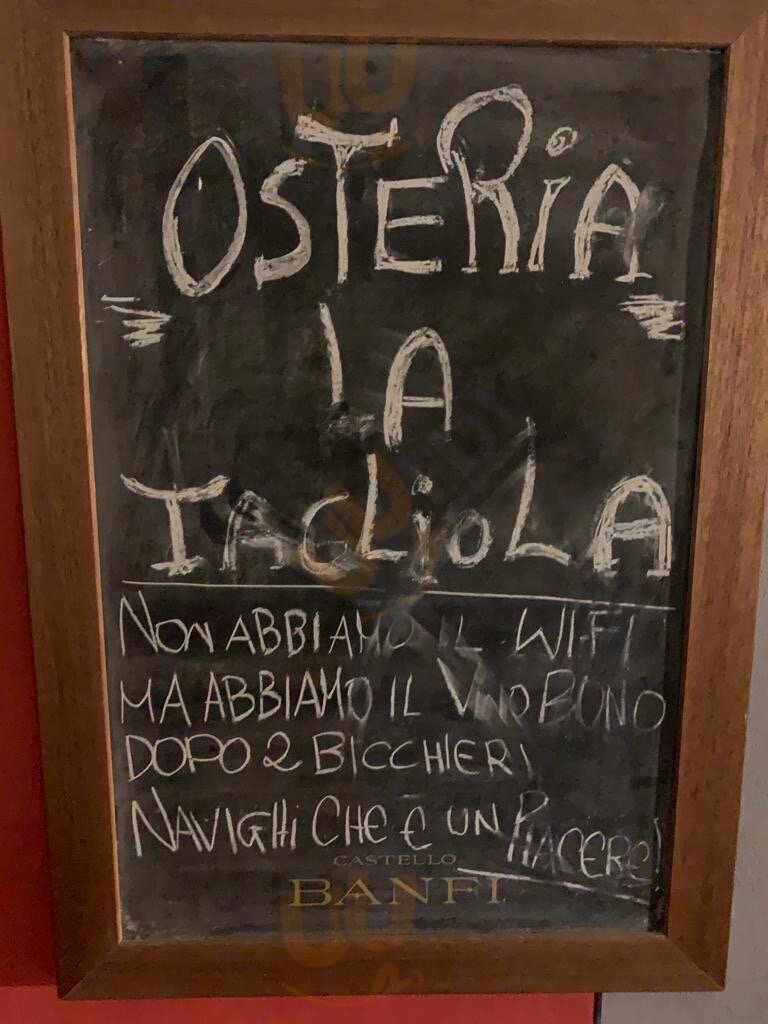 OSTERiA
LA
TAGLioLA
NON ABBIAMO IL WIFI
MA ABBIAMO IL VINO BONO
DOPO 2 BICCHIERI
NAVIGHi CHE E UN PIACERE!
CASTELLO
BANFI